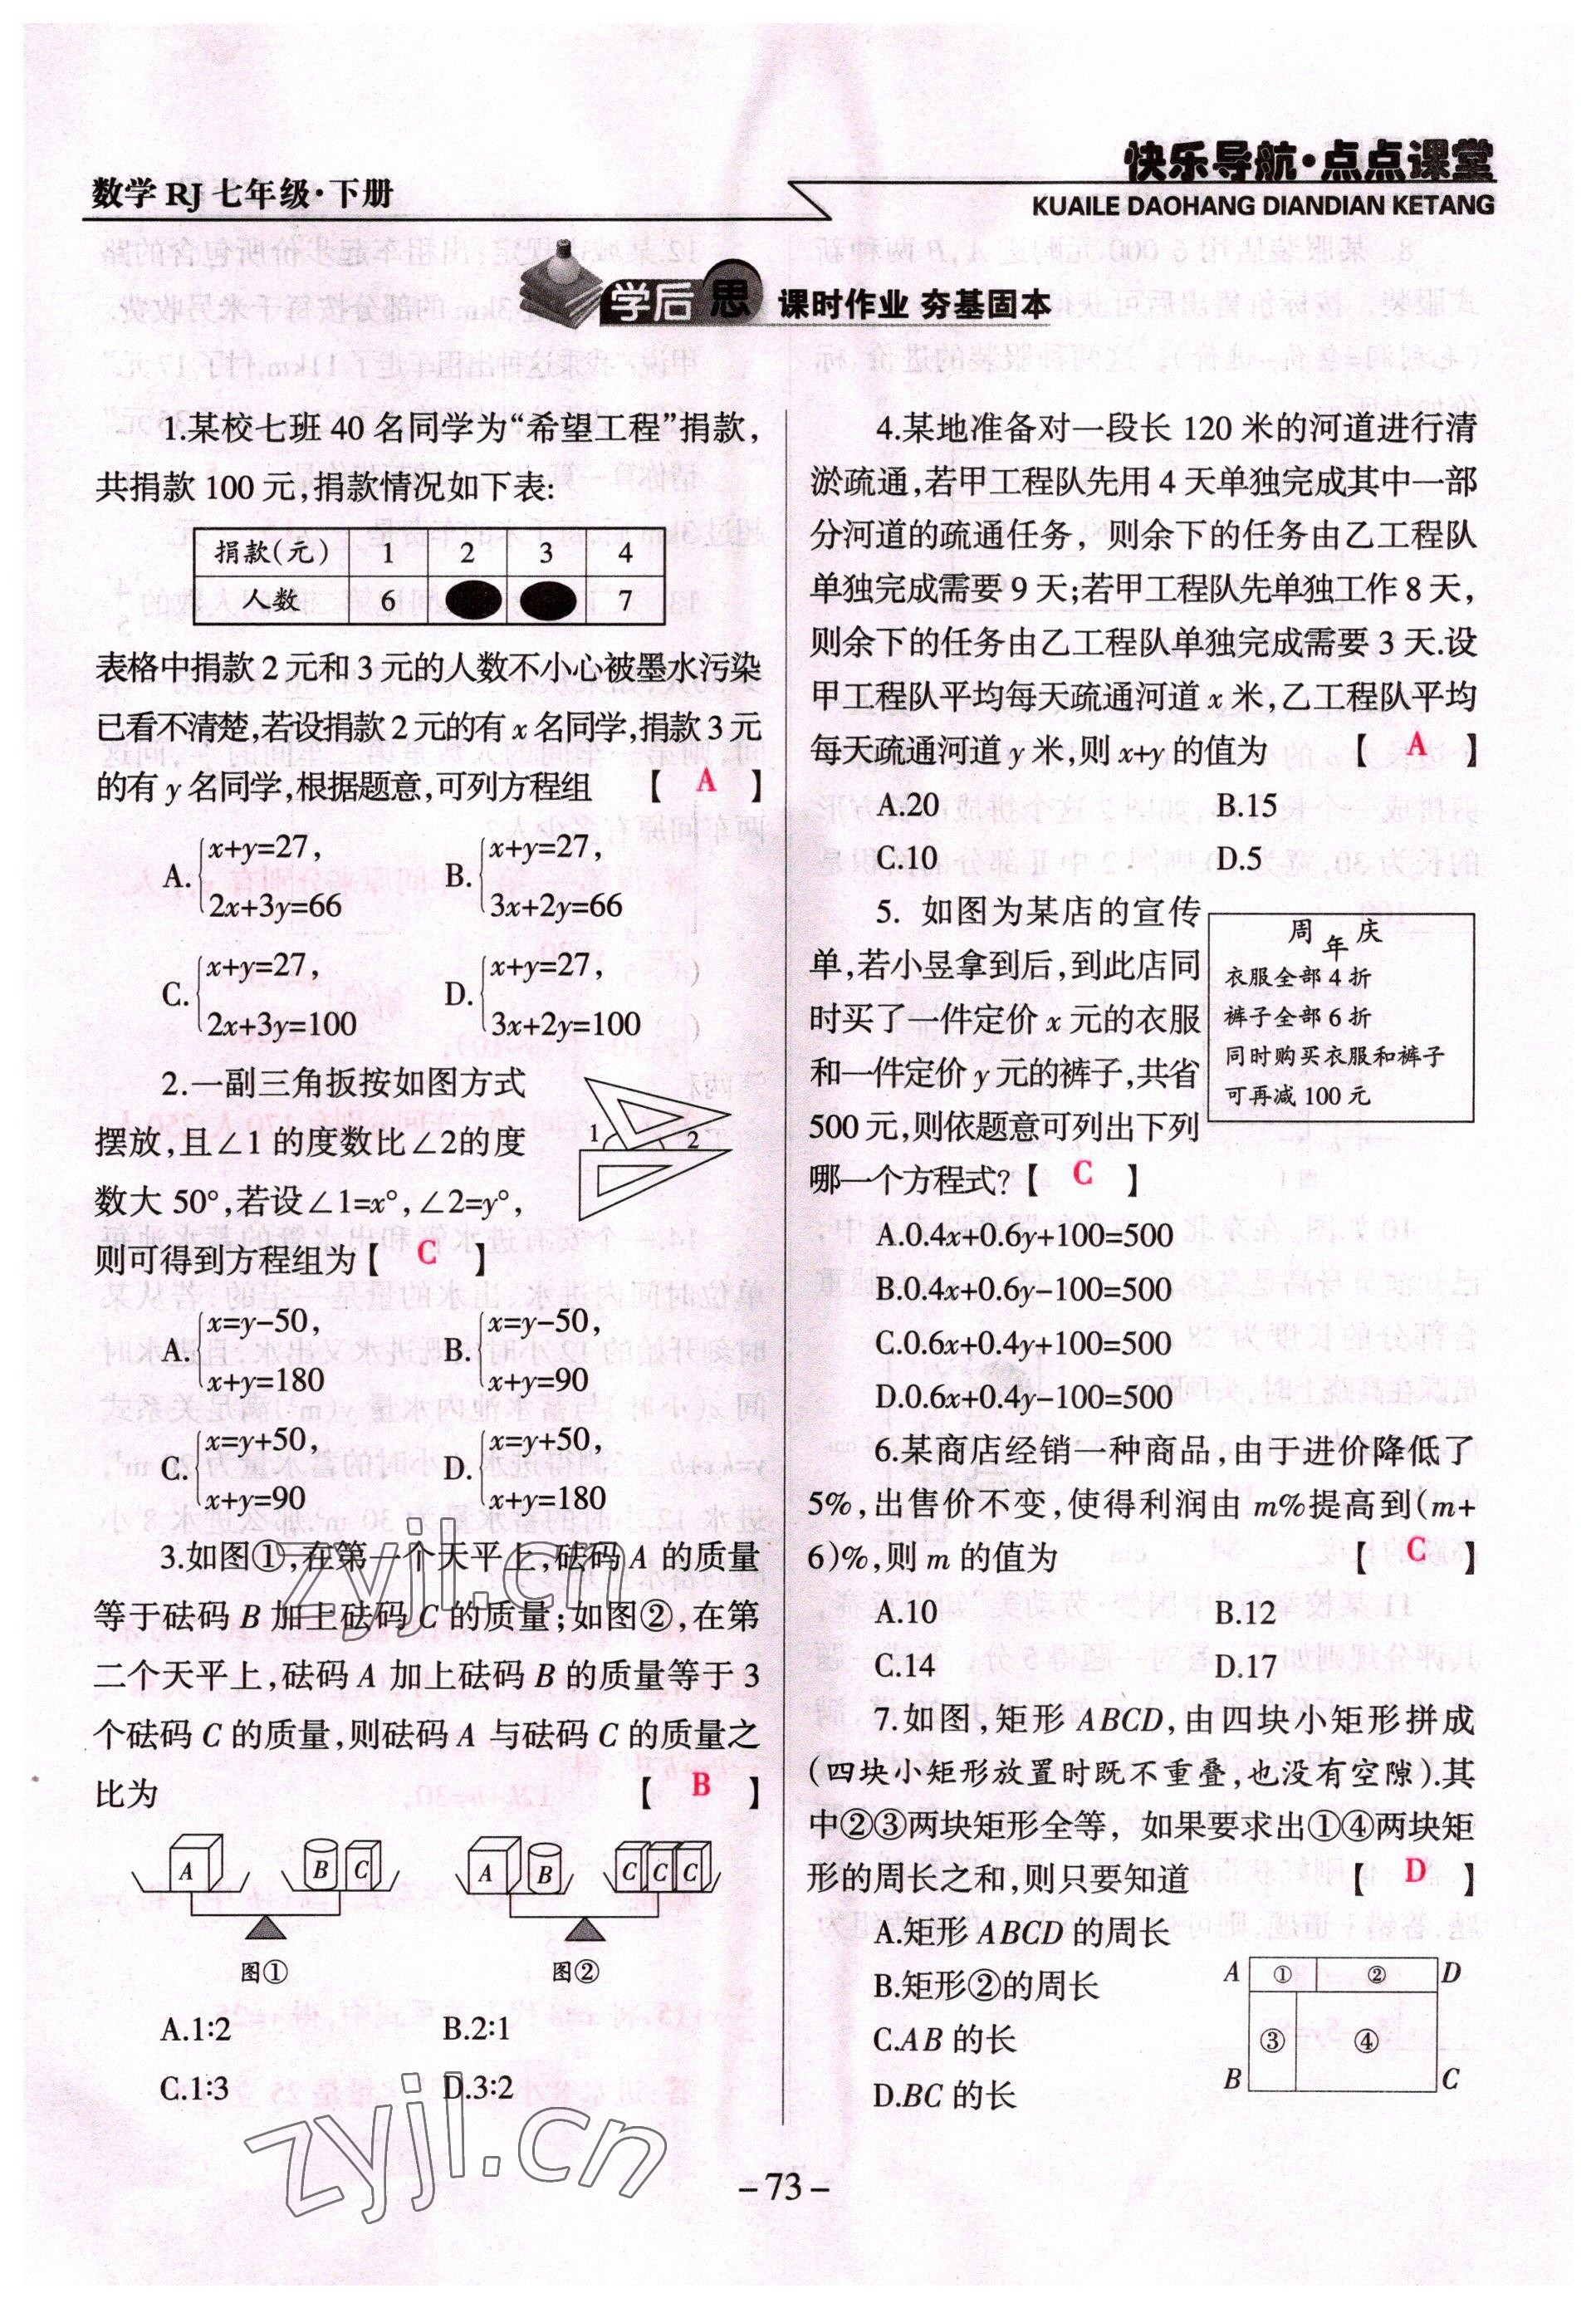 数学 RJ 七年级·下册
快乐导航·点点课堂
KUAILE DAOHANG DIANDIAN KETANG
学后思 课时作业 夯基固本
1.某校七班 40 名同学为“希望工程”捐款,
共捐款 100 元,捐款情况如下表:
捐款(元) 1 2 3 4
人数 6 7
表格中捐款 2 元和 3 元的人数不小心被墨水污染
已看不清楚,若设捐款 2 元的有 x 名同学,捐款 3 元
的有 y 名同学,根据题意,可列方程组 【 A 】
A.{x+y=27, 2x+3y=66 B.{x+y=27, 3x+2y=66
C.{x+y=27, 2x+3y=100 D.{x+y=27, 3x+2y=100
2.一副三角扳按如图方式
摆放,且∠1 的度数比∠2的度
数大 50°,若设∠1=x°,∠2=y°,
则可得到方程组为【 C 】
1 2
A.{x=y-50, x+y=180 B.{x=y-50, x+y=90
C.{x=y+50, x+y=90 D.{x=y+50, x+y=180
3.如图①,在第一个天平上,砝码 A 的质量
等于砝码 B 加上砝码 C 的质量;如图②,在第
二个天平上,砝码 A 加上砝码 B 的质量等于 3
个砝码 C 的质量,则砝码 A 与砝码 C 的质量之
比为 【 B 】
A B C A B C C C
图① 图②
A.1∶2 B.2∶1
C.1∶3 D.3∶2
4.某地准备对一段长 120 米的河道进行清
淤疏通,若甲工程队先用 4 天单独完成其中一部
分河道的疏通任务，则余下的任务由乙工程队
单独完成需要 9 天;若甲工程队先单独工作 8 天,
则余下的任务由乙工程队单独完成需要 3 天.设
甲工程队平均每天疏通河道 x 米,乙工程队平均
每天疏通河道 y 米,则 x+y 的值为 【 A 】
A.20 B.15
C.10 D.5
5. 如图为某店的宣传
单,若小昱拿到后,到此店同
时买了一件定价 x 元的衣服
和一件定价 y 元的裤子,共省
500 元,则依题意可列出下列
哪一个方程式?【 C 】
周年庆
衣服全部 4 折
裤子全部 6 折
同时购买衣服和裤子
可再减 100 元
A.0.4x+0.6y+100=500
B.0.4x+0.6y-100=500
C.0.6x+0.4y+100=500
D.0.6x+0.4y-100=500
6.某商店经销一种商品,由于进价降低了
5%,出售价不变,使得利润由 m%提高到(m+
6)%,则 m 的值为 【 C 】
A.10 B.12
C.14 D.17
7.如图,矩形 ABCD,由四块小矩形拼成
(四块小矩形放置时既不重叠,也没有空隙).其
中②③两块矩形全等，如果要求出①④两块矩
形的周长之和,则只要知道 【 D 】
A.矩形 ABCD 的周长
B.矩形②的周长
C.AB 的长
D.BC 的长
A ① ② D
③ ④
B C
zyjl.cn
zyjl.cn
-73-